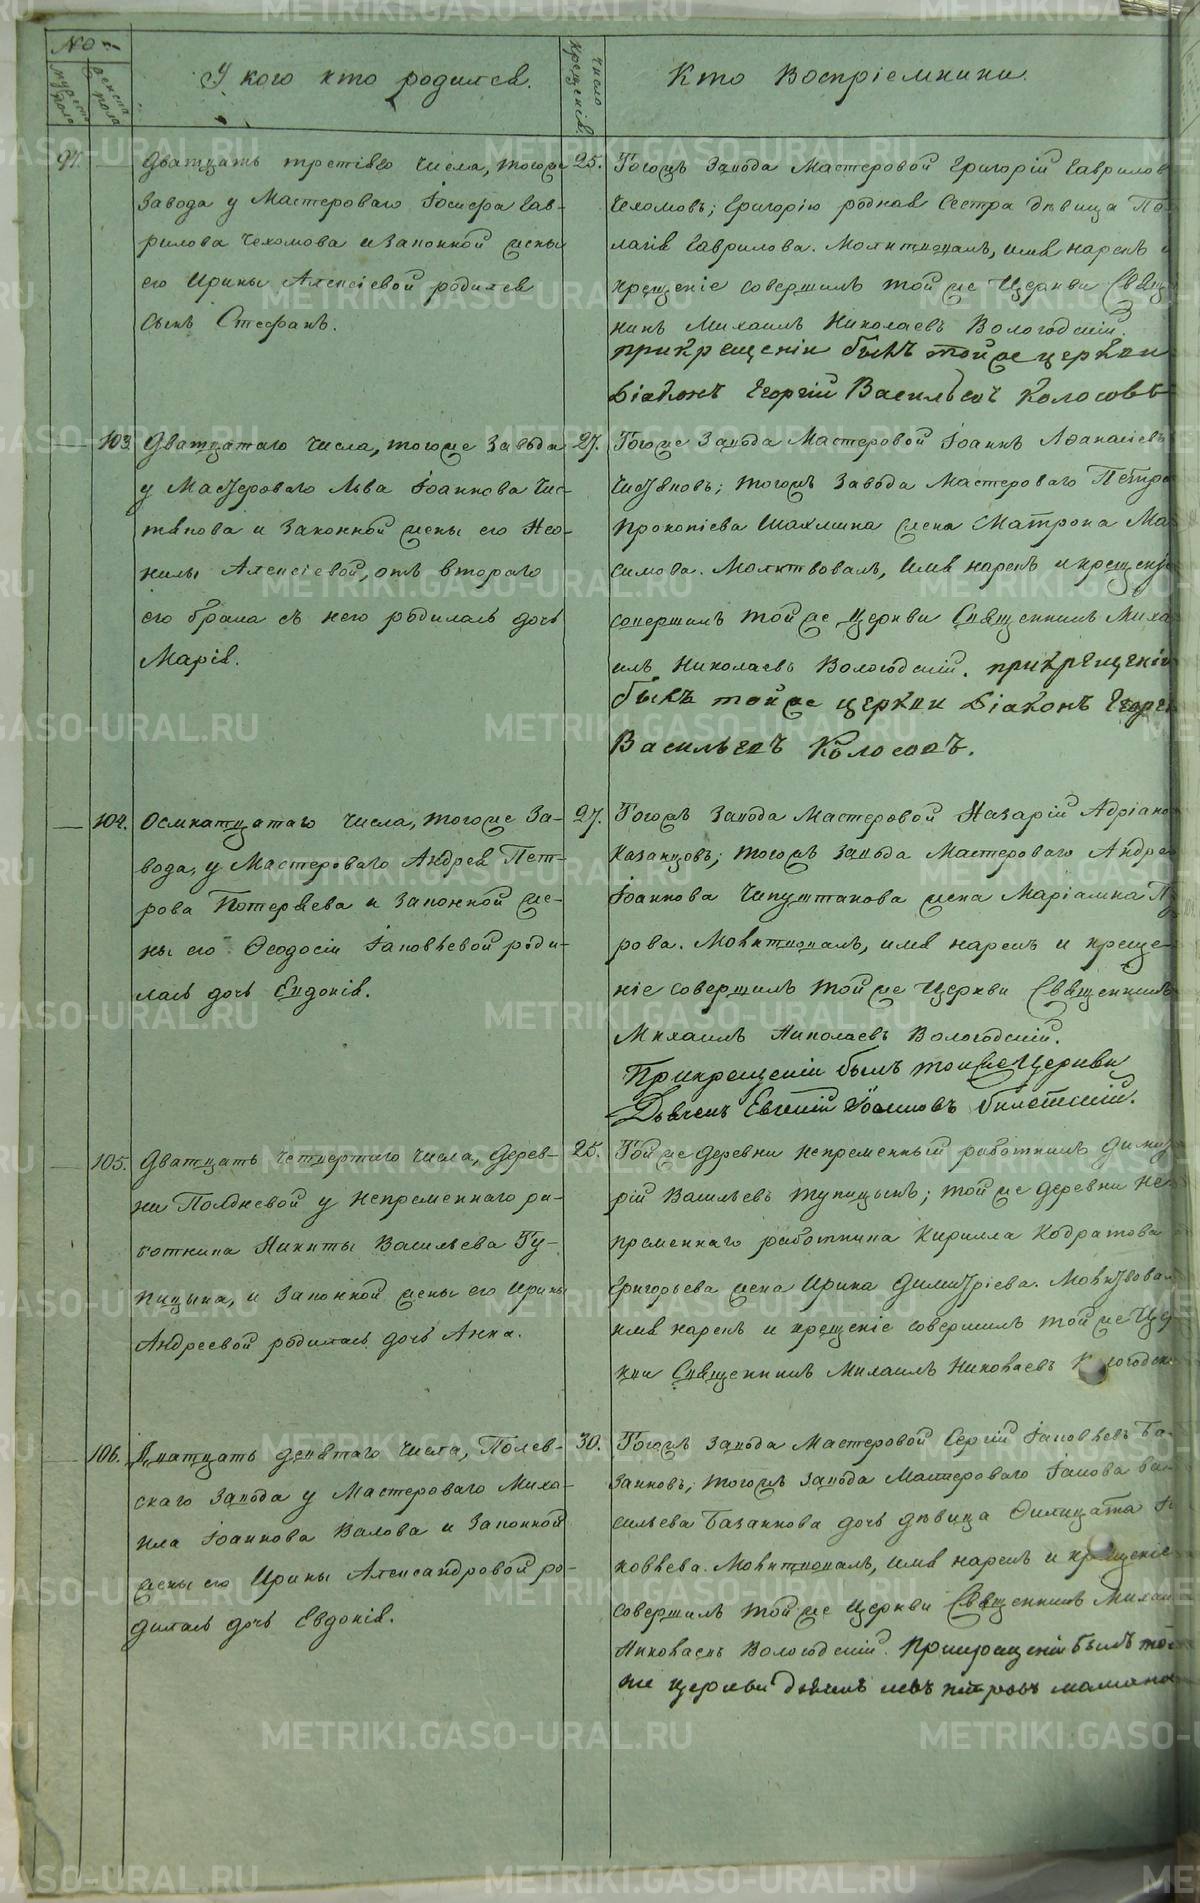 №
мужеска пола
женска пола
У кого кто родился.
число крещенія.
Кто Воспріемники.
97.
Дватцать третіяго числа, тогоже
завода у Мастероваго Іосифа Гав-
рилова Чехомова и законной жены
его Ирины Алексіевой родился
сынъ Стефанъ.
25.
Тогожъ завода Мастеровой Григорій Гаврилов
Чехомовъ; Григорію родная Сестра дѣвица Пе
лагія Гаврилова. Молитвовалъ, имя нарекъ и
крещеніе совершилъ той же Церкви Свяще
никъ Михаилъ Николаевъ Вологодскій.
прикрещеніи былъ тойже церкви
Діаконъ Егоргій Васильевъ Колосовъ
103.
Дватцатаго числа, тогоже завода
у Мастероваго Льва Іоаннова Чис-
тякова и законной жены его Нео-
нилы Алексіевой, отъ втораго
его брака съ него родилась дочь
Марія.
27.
Тогоже завода Мастеровой Іоаннъ Аѳанасіевъ
Чистяковъ; тогожъ завода Мастероваго Петра
Прокопіева Шахмина жена Матрона Ма
симова. Молитвовалъ, имя нарекъ и крещеніе
совершилъ той же Церкви Священникъ Миха
илъ Николаевъ Вологодскій. прикрещеніи
былъ тойже церкви Діаконъ Егорги
Васильевъ Колосовъ.
104.
Осмнатцатаго числа, тогоже За-
вода, у Мастероваго Андрея Пет-
рова Потеряева и законной же-
ны его Ѳеодосіи Іаковлевой роди-
лась дочь Евдокія.
27.
Тогожъ завода Мастеровой Назарій Адріано
Казанцовъ; тогожъ завода Мастероваго Андрея
Іоаннова Чипуштанова жена Маріамна П
рова. Молитвовалъ, имя нарекъ и креще-
ніе совершилъ той же Церкви Священникъ
Михаилъ Николаевъ Вологодскій.
Прикрещеніи былъ тойже Церкви
Дьячекъ Евгеній
105.
Дватцать четвертаго числа, дерев-
ни Полдневой у непременнаго ра-
ботника Никиты Васильева Ту-
пицына, и законной жены его Ирины
Андреевой родилась дочь Анна.
25.
Той же деревни непременный работникъ Димит
рій Васильевъ Тупицынъ; той же деревни не
пременнаго работника Кирилла Кодратова
Григорьева жена Ирина Димитріева. Молитвовал
имя нарекъ и крещеніе совершилъ той же Цер
кви Священникъ Михаилъ Николаевъ Вологодски
106.
Дватцать девятаго числа, Полев-
скаго завода у Мастероваго Миха-
ила Іоаннова Валова и законной
жены его Ирины Александровой ро-
дилась дочь Евдокія.
30.
Тогожъ завода Мастеровой Сергій Іаковлевъ Ба-
занковъ; тогожъ завода Мастероваго Іакова Ва
сильева Базанкова дочь дѣвица Филицата Іа
ковлева. Молитвовалъ, имя нарекъ и крещеніе
совершилъ той же Церкви Священникъ Михаи
Николаевъ Вологодскій. Прикрещеніи былъ той
же церкви
METRIKI.GASO-URAL.RU